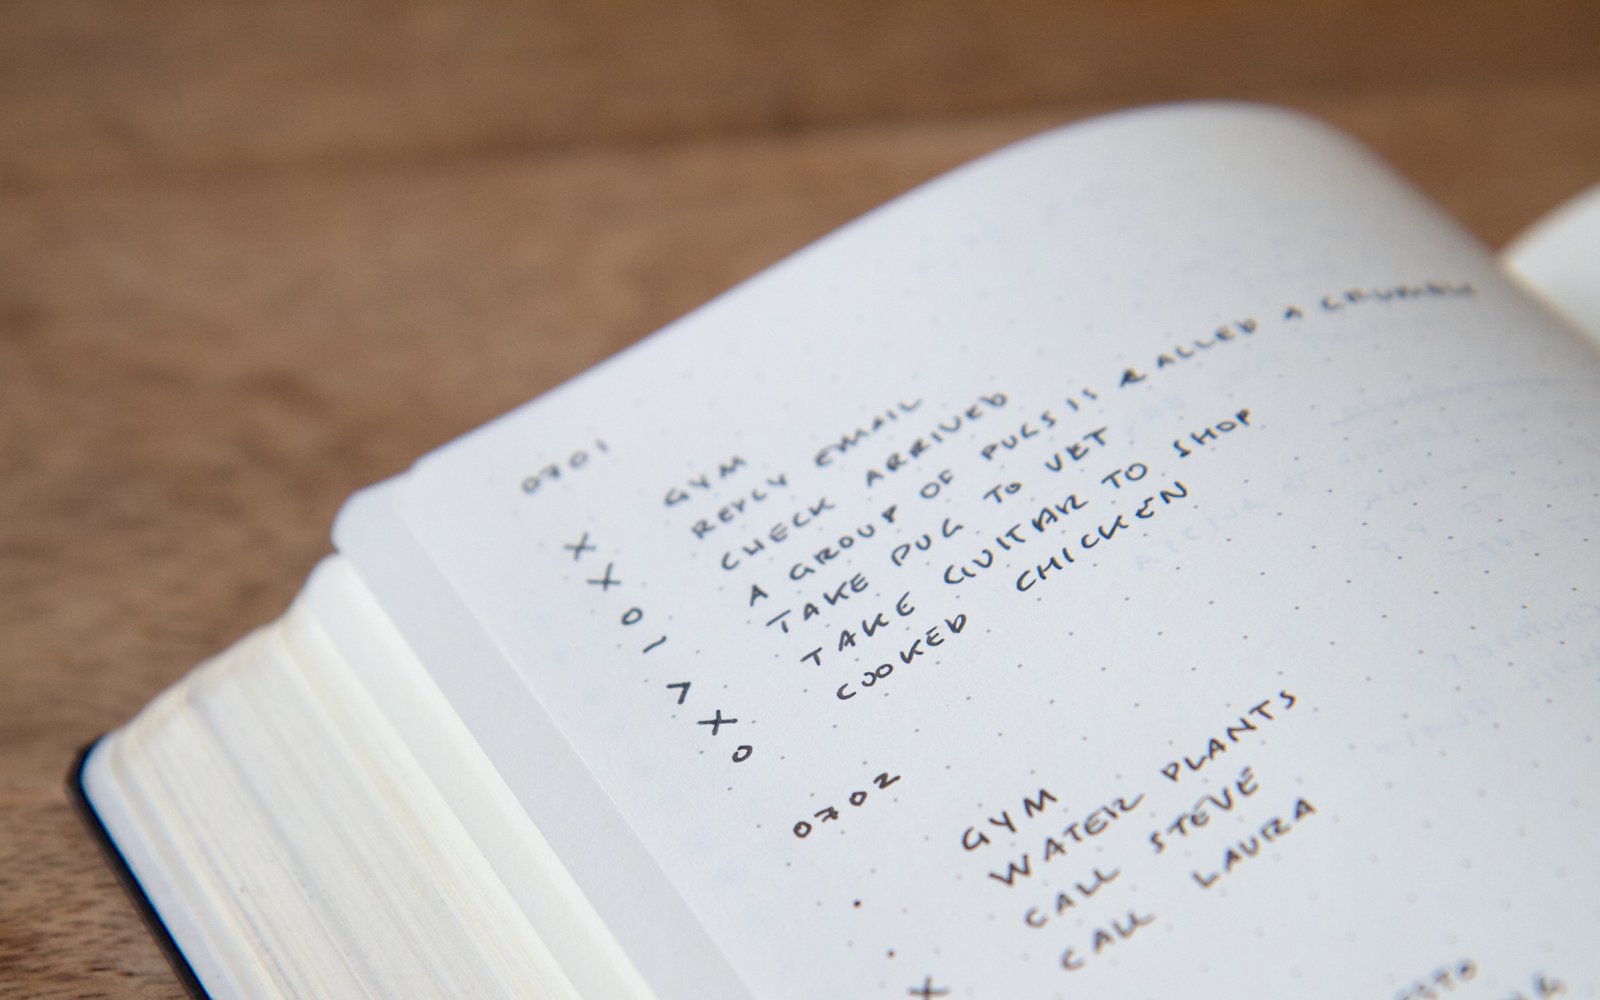 0701
X GYM
X REPLY EMAIL
O CHECK ARRIVED
– A GROUP OF PUGS IS CALLED A GRUMBLE
> TAKE PUG TO VET
X TAKE GUITAR TO SHOP
O COOKED CHICKEN
0702
• GYM
• WATER PLANTS
X CALL STEVE
CALL LAURA